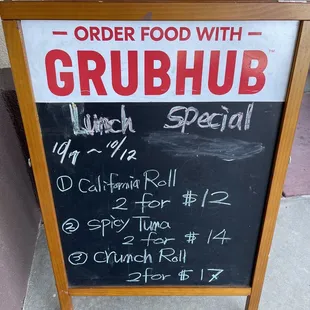 ORDER FOOD WITH
GRUBHUB
Lunch Special
10/9 ~ 10/12
① California Roll
2 for $12
② Spicy Tuna
2 for $14
③ Crunch Roll
2 for $17